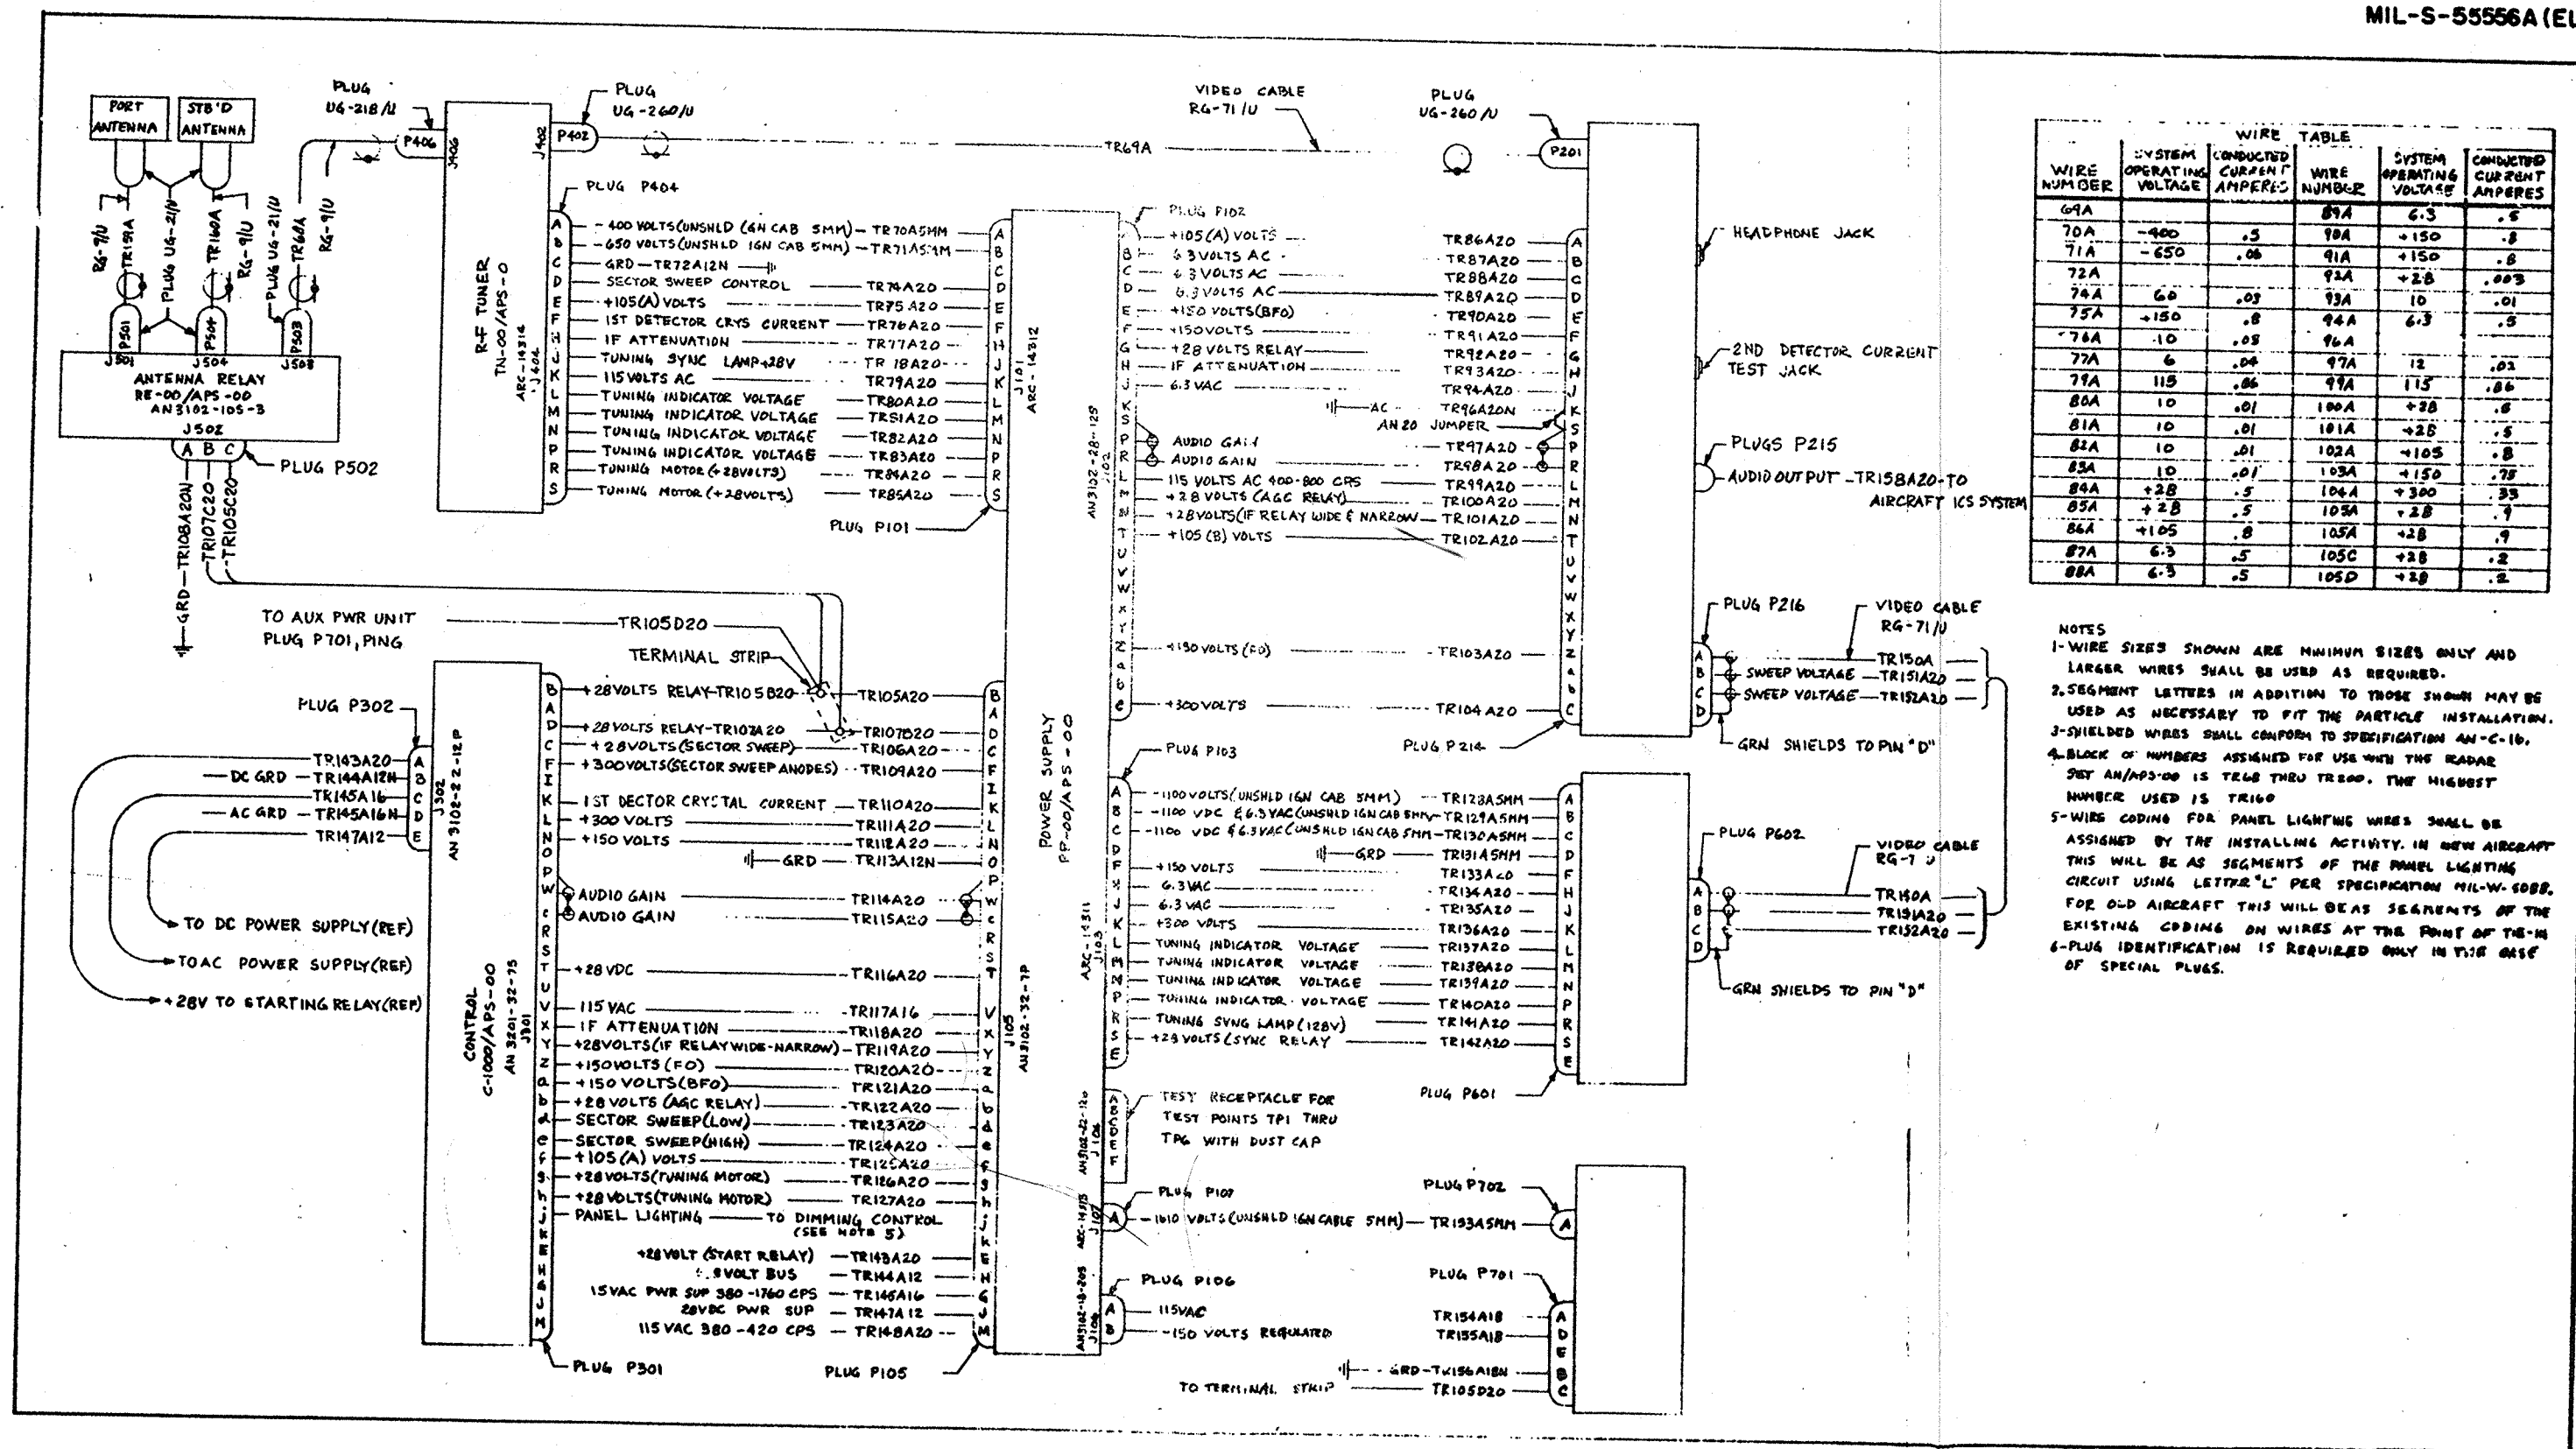 MIL-S-55556A(EL
PORT
ANTENNA
STB'D
ANTENNA
PLUG
UG-218/U
P406
J406
RG-9/U
TR159A
PLUG UG-21/U
TR160A
RG-9/U
PLUG UG-21/U
TR60A
RG-9/U
P501
P504
P503
J501
J504
J503
ANTENNA RELAY
RE-00/APS-00
AN3102-10S-3
J502
A B C
PLUG P502
GRD-TR108A20N
TR107C20
TR105C20
R-F TUNER
TN-00/APS-0
ARC-14314
J404
J402
P402
PLUG
UG-260/U
TR69A
VIDEO CABLE
RG-71/U
PLUG
UG-260/U
P201
PLUG P404
A -400 VOLTS(UNSHLD IGN CAB 5MM)-TR70A5MM A
B -650 VOLTS(UNSHLD IGN CAB 5MM)-TR71A5MM B
C GRD-TR72A12N C
D SECTOR SWEEP CONTROL TR74A20 D
E +105(A) VOLTS TR75A20 E
F 1ST DETECTOR CRYS CURRENT TR76A20 F
H IF ATTENUATION TR77A20 H
J TUNING SYNC LAMP+28V TR 18A20 J
K 115 VOLTS AC TR79A20 K
L TUNING INDICATOR VOLTAGE TR80A20 L
M TUNING INDICATOR VOLTAGE TR81A20 M
N TUNING INDICATOR VOLTAGE TR82A20 N
P TUNING INDICATOR VOLTAGE TR83A20 P
R TUNING MOTOR (+28VOLTS) TR84A20 R
S TUNING MOTOR (+28VOLTS) TR85A20 S
PLUG P101
J101
ARC-14312
PLUG P102
+105(A) VOLTS TR86A20 A
B 6.3 VOLTS AC TR87A20 B
C 6.3 VOLTS AC TR88A20 C
D 6.3 VOLTS AC TR89A20 D
E +150 VOLTS(BFO) TR90A20 E
F +150VOLTS TR91A20 F
G +28 VOLTS RELAY TR92A20 G
H IF ATTENUATION TR93A20 H
J 6.3 VAC TR94A20 J
K AC TR96A20N K
S AN 20 JUMPER S
P AUDIO GAIN TR97A20 P
R AUDIO GAIN TR98A20 R
L 115 VOLTS AC 400-800 CPS TR99A20 L
M +28 VOLTS (AGC RELAY) TR100A20 M
N +28VOLTS(IF RELAY WIDE & NARROW TR101A20 N
T +105 (B) VOLTS TR102A20 T
U U
V V
W W
X X
Y Y
Z +150 VOLTS (FO) TR103A20 Z
a a
b b
c +300 VOLTS TR104A20 C
AN3102-28-12S
J102
PLUG P214
HEADPHONE JACK
2ND DETECTOR CURRENT
TEST JACK
PLUGS P215
AUDIO OUTPUT-TR158A20-TO
AIRCRAFT ICS SYSTEM
PLUG P216
VIDEO CABLE
RG-71/U
A TR150A
B SWEEP VOLTAGE TR151A20
C SWEEP VOLTAGE TR152A20
D
GRN SHIELDS TO PIN "D"
TO AUX PWR UNIT
PLUG P701, PING
TR105D20
TERMINAL STRIP
PLUG P302
TR143A20 A
DC GRD - TR144A12N B
TR145A16 C
AC GRD - TR145A16N D
TR147A12 E
J302
AN 3102-22-12P
TO DC POWER SUPPLY(REF)
TO AC POWER SUPPLY(REF)
+28V TO STARTING RELAY(REF)
CONTROL
C-1000/APS-00
AN 3201-32-7S
J301
B +28VOLTS RELAY-TR105B20 TR105A20 B
A A
D +28VOLTS RELAY-TR107A20 TR107B20 D
C +28VOLTS(SECTOR SWEEP) TR106A20 C
F +300VOLTS(SECTOR SWEEP ANODES) TR109A20 F
I I
K 1ST DECTOR CRYSTAL CURRENT TR110A20 K
L +300 VOLTS TR111A20 L
N +150 VOLTS TR112A20 N
O GRD TR113A12N O
P P
W AUDIO GAIN TR114A20 W
c AUDIO GAIN TR115A20 c
R R
S S
T +28 VDC TR116A20 T
U
V 115 VAC TR117A16 V
X IF ATTENUATION TR118A20 X
Y +28VOLTS(IF RELAY WIDE-NARROW)-TR119A20 Y
Z +150VOLTS (FO) TR120A20 Z
a +150 VOLTS(BFO) TR121A20 a
b +28 VOLTS (AGC RELAY) TR122A20 b
d SECTOR SWEEP(LOW) TR123A20 d
e SECTOR SWEEP(HIGH) TR124A20 e
f +105 (A) VOLTS TR125A20 f
g +28VOLTS(TUNING MOTOR) TR126A20 g
h +28 VOLTS(TUNING MOTOR) TR127A20 h
j PANEL LIGHTING TO DIMMING CONTROL j
(SEE NOTE 5)
k k
E +28VOLT (START RELAY) TR143A20 E
H VOLT BUS TR144A12 H
G 15 VAC PWR SUP 380-1760 CPS TR145A16 G
J 28VDC PWR SUP TR147A12 J
M 115 VAC 380-420 CPS TR148A20 M
PLUG P301
PLUG P105
J105
AN3102-32-7P
POWER SUPPLY
PP-00/APS-00
PLUG P103
A -1100 VOLTS(UNSHLD IGN CAB 5MM) TR128A5MM A
B -1100 VDC & 6.3 VAC(UNSHLD IGN CAB 5MM-TR129A5MM B
C -1100 VDC & 6.3VAC(UNSHLD IGN CAB 5MM-TR130A5MM C
D GRD TR131A5MM D
F +150 VOLTS TR133A20 F
H 6.3 VAC TR134A20 H
J 6.3 VAC TR135A20 J
K +300 VOLTS TR136A20 K
L TUNING INDICATOR VOLTAGE TR137A20 L
M TUNING INDICATOR VOLTAGE TR138A20 M
N TUNING INDICATOR VOLTAGE TR139A20 N
P TUNING INDICATOR VOLTAGE TR140A20 P
R TUNING SYNG LAMP(128V) TR141A20 R
S +28 VOLTS (SYNC RELAY TR142A20 S
E E
ARC-14311
J103
PLUG P601
PLUG P602
VIDEO CABLE
A TR150A
B TR151A20
C TR152A20
D
GRN SHIELDS TO PIN "D"
TEST RECEPTACLE FOR
TEST POINTS TP1 THRU
TP6 WITH DUST CAP
PLUG P107
J107
A -1610 VOLTS(UNSHLD IGN CABLE 5MM)-TR153A5MM A
PLUG P702
PLUG P106
A 115VAC
B -150 VOLTS REGULATED
PLUG P701
TR154A18 A
TR155A18 D
E
GRD-TR156A18N B
TO TERMINAL STRIP TR105D20 C
WIRE TABLE
WIRE NUMBER SYSTEM OPERATING VOLTAGE CONDUCTED CURRENT AMPERES WIRE NUMBER SYSTEM OPERATING VOLTAGE CONDUCTED CURRENT AMPERES
69A 89A 6.3 .5
70A -400 .5 90A +150 .8
71A -650 .06 91A +150 .8
72A 92A +28 .003
74A 60 .03 93A 10 .01
75A +150 .8 94A 6.3 .5
76A 10 .05 96A
77A 6 .04 97A 12 .02
79A 115 .86 99A 115 .86
80A 10 .01 100A +28 .6
81A 10 .01 101A +28 .5
82A 10 .01 102A +105 .8
83A 10 .01 103A +150 .75
84A +28 .5 104A +300 .33
85A +28 .5 105A +28 .9
86A +105 .8 105A +28 .9
87A 6.3 .5 105C +28 .2
88A 6.3 .5 105D +28 .2
NOTES
1-WIRE SIZES SHOWN ARE MINIMUM SIZES ONLY AND
LARGER WIRES SHALL BE USED AS REQUIRED.
2.SEGMENT LETTERS IN ADDITION TO THOSE SHOWN MAY BE
USED AS NECESSARY TO FIT THE PARTICLE INSTALLATION.
3-SHIELDED WIRES SHALL CONFORM TO SPECIFICATION AN-C-16.
4.BLOCK OF NUMBERS ASSIGNED FOR USE WITH THE RADAR
SET AN/APS-00 IS TR68 THRU TR200. THE HIGHEST
NUMBER USED IS TR160
5-WIRE CODING FOR PANEL LIGHTING WIRES SHALL BE
ASSIGNED BY THE INSTALLING ACTIVITY. IN NEW AIRCRAFT
THIS WILL BE AS SEGMENTS OF THE PANEL LIGHTING
CIRCUIT USING LETTER "L" PER SPECIFICATION MIL-W-5088.
FOR OLD AIRCRAFT THIS WILL BE AS SEGMENTS OF THE
EXISTING CODING ON WIRES AT THE POINT OF TIE-IN
6-PLUG IDENTIFICATION IS REQUIRED ONLY IN THE CASE
OF SPECIAL PLUGS.